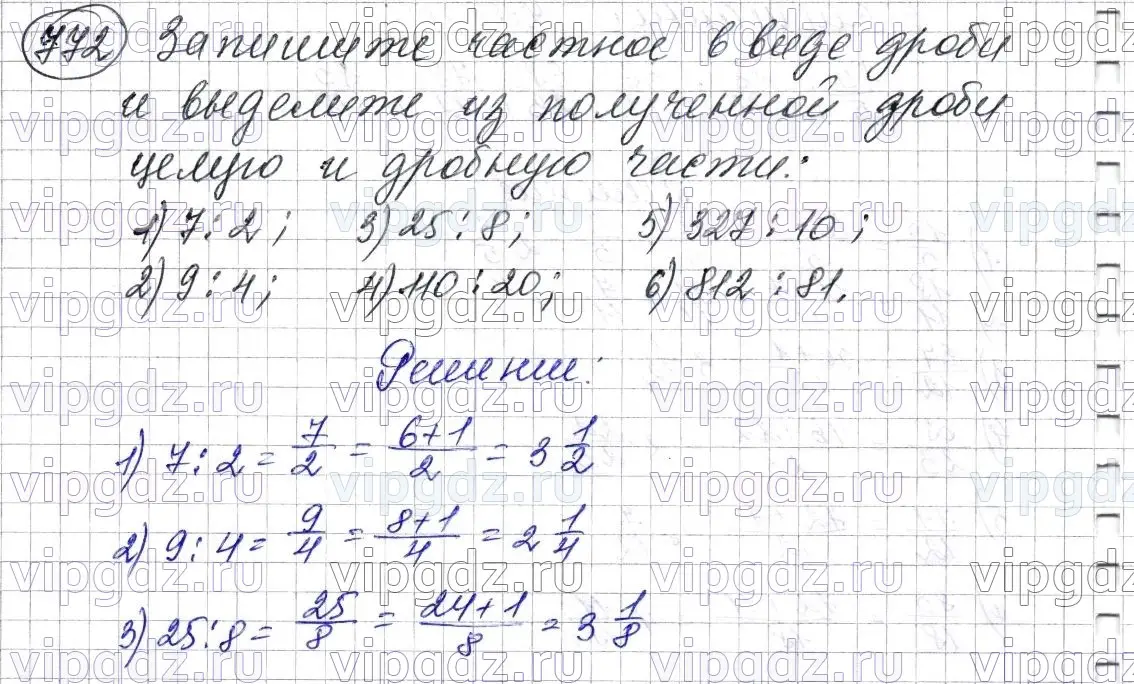 772 Запишите частное в виде дроби
и выделите из полученной дроби
целую и дробную части:
1) 7 : 2; 3) 25 : 8; 5) 327 : 10;
2) 9 : 4; 4) 110 : 20; 6) 812 : 81.
Решение:
1) 7 : 2 = 7/2 = (6+1)/2 = 3 1/2
2) 9 : 4 = 9/4 = (8+1)/4 = 2 1/4
3) 25 : 8 = 25/8 = (24+1)/8 = 3 1/8
vipgdz.ru